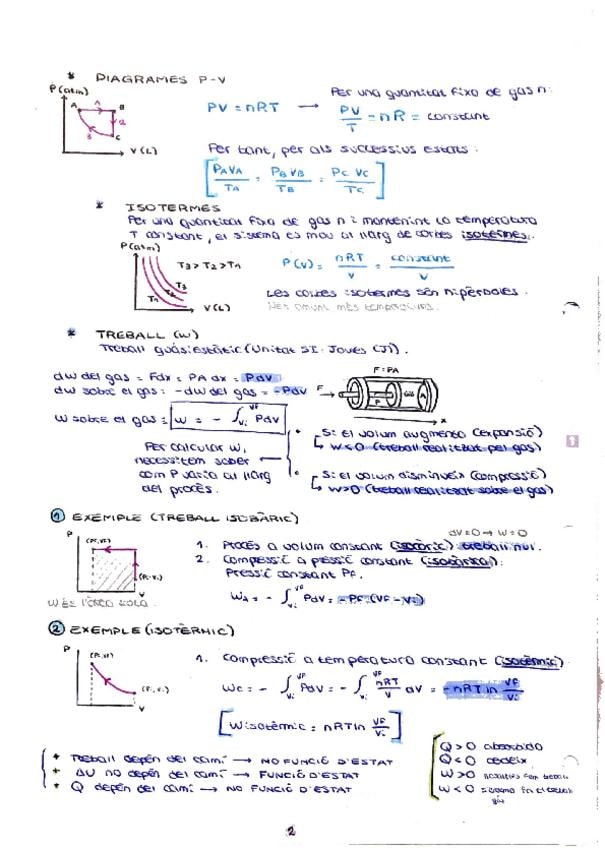 * DIAGRAMES P-V
P(atm)
A 1 B
2
3 C
V(L)
Per una quantitat fixa de gas n:
PV = nRT → PV/T = nR = constant
Per tant, per als successius estats:
[PAVA/TA = PBVB/TB = PCVC/TC]
* ISOTERMES
Per una quantitat fixa de gas n i mantenint la temperatura
T constant, el sistema es mou al llarg de corbes isotermes.
P(atm)
T3 > T2 > T1
T3
T2
T1
V(L)
P(V) = nRT/V = constant/V
Les corbes isotermes són hipèrboles.
* TREBALL (W)
Treball quasiestàtic (Unitat SI: Joules (J)).
dW del gas = Fdx = PA dx = PdV
dW sobre el gas: -dW del gas = -PdV
F = PA
F
P
A
x
W sobre el gas = W = - ∫Vi VF PdV
Per calcular W,
necessitem saber
com P varia al llarg
del procés.
• Si el volum augmenta (expansió)
W<0 (treball realitzat pel gas)
• Si el volum disminueix (compressió)
W>0 (treball realitzat sobre el gas)
1 EXEMPLE (TREBALL ISOBÀRIC)
dV=0 → W=0
P
V
1. Procés a volum constant (isocòric) treball nul.
2. Compressió a pressió constant (isobàrica):
Pressió constant PF.
WA = - ∫Vi VF PdV = -PF·(VF-Vi)
W és l'àrea sota.
2 EXEMPLE (ISOTÈRMIC)
P
V
1. Compressió a temperatura constant (isotèrmic)
WC = - ∫Vi VF PdV = - ∫Vi VF nRT/V dV = -nRT ln VF/Vi
[Wisotèrmic = nRT ln VF/Vi]
+ Treball depèn del camí → NO FUNCIÓ D'ESTAT
+ ΔU no depèn del camí → FUNCIÓ D'ESTAT
+ Q depèn del camí → NO FUNCIÓ D'ESTAT
Q>0 absorbido
Q<0 cedeix
W>0
W<0
2